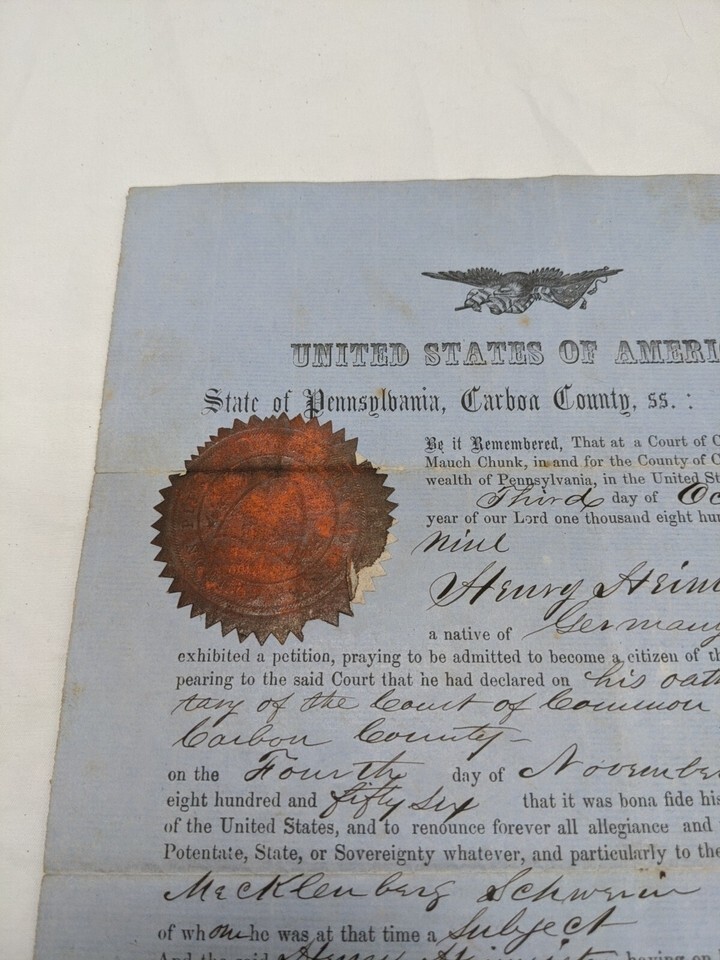 UNITED STATES OF AMERI
State of Pennsylvania, Carbon County, ss. :
Be it Remembered, That at a Court of C
Mauch Chunk, in and for the County of C
wealth of Pennsylvania, in the United St
Third day of Oc
year of our Lord one thousand eight hun
nine
Henry Heim
a native of Germany
exhibited a petition, praying to be admitted to become a citizen of th
pearing to the said Court that he had declared on his oath
tary of the Court of Common
Carbon County
on the Fourth day of November
eight hundred and fifty six that it was bona fide his
of the United States, and to renounce forever all allegiance and
Potentate, State, or Sovereignty whatever, and particularly to the
Mecklenberg Schwerin
of whom he was at that time a Subject
And the said Henry having on